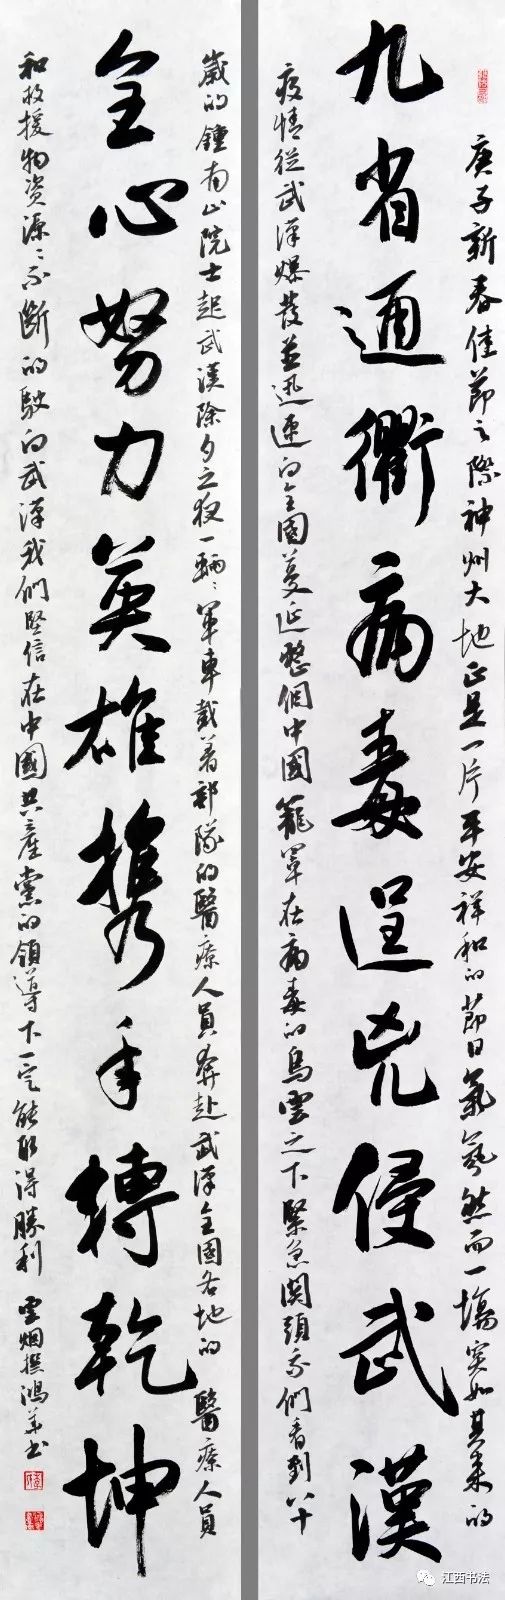 庚子新春佳節之際神州大地正是一片平安祥和的節日氣氛然而一場突如其来的
九省通衢病毒逞兇侵武漢
疫情從武漢爆發並迅速向全國蔓延整個中國籠罩在病毒的烏雲之下緊急関頭我們看到八十
歲的鍾南山院士起武漢除夕之夜一輛〻軍車載着部隊的醫療人員奔赴武漢全國各地的醫療人員
全心努力英雄携手轉乾坤
和救援物资源〻不斷的駛向武漢我們堅信在中國共產黨的領導下一定能取得勝利 雲烟撰鴻華书
江西书法